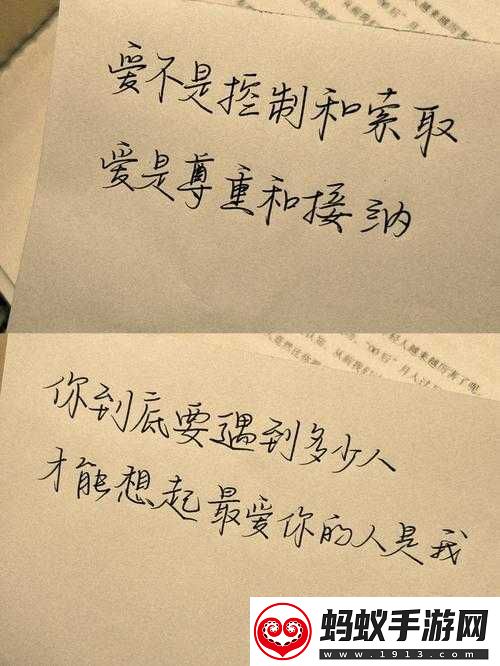 爱不是控制和索取
爱是尊重和接纳
你到底要遇到多少人
才能想起最爱你的人是我
蚂蚁手游网
www.1913.com